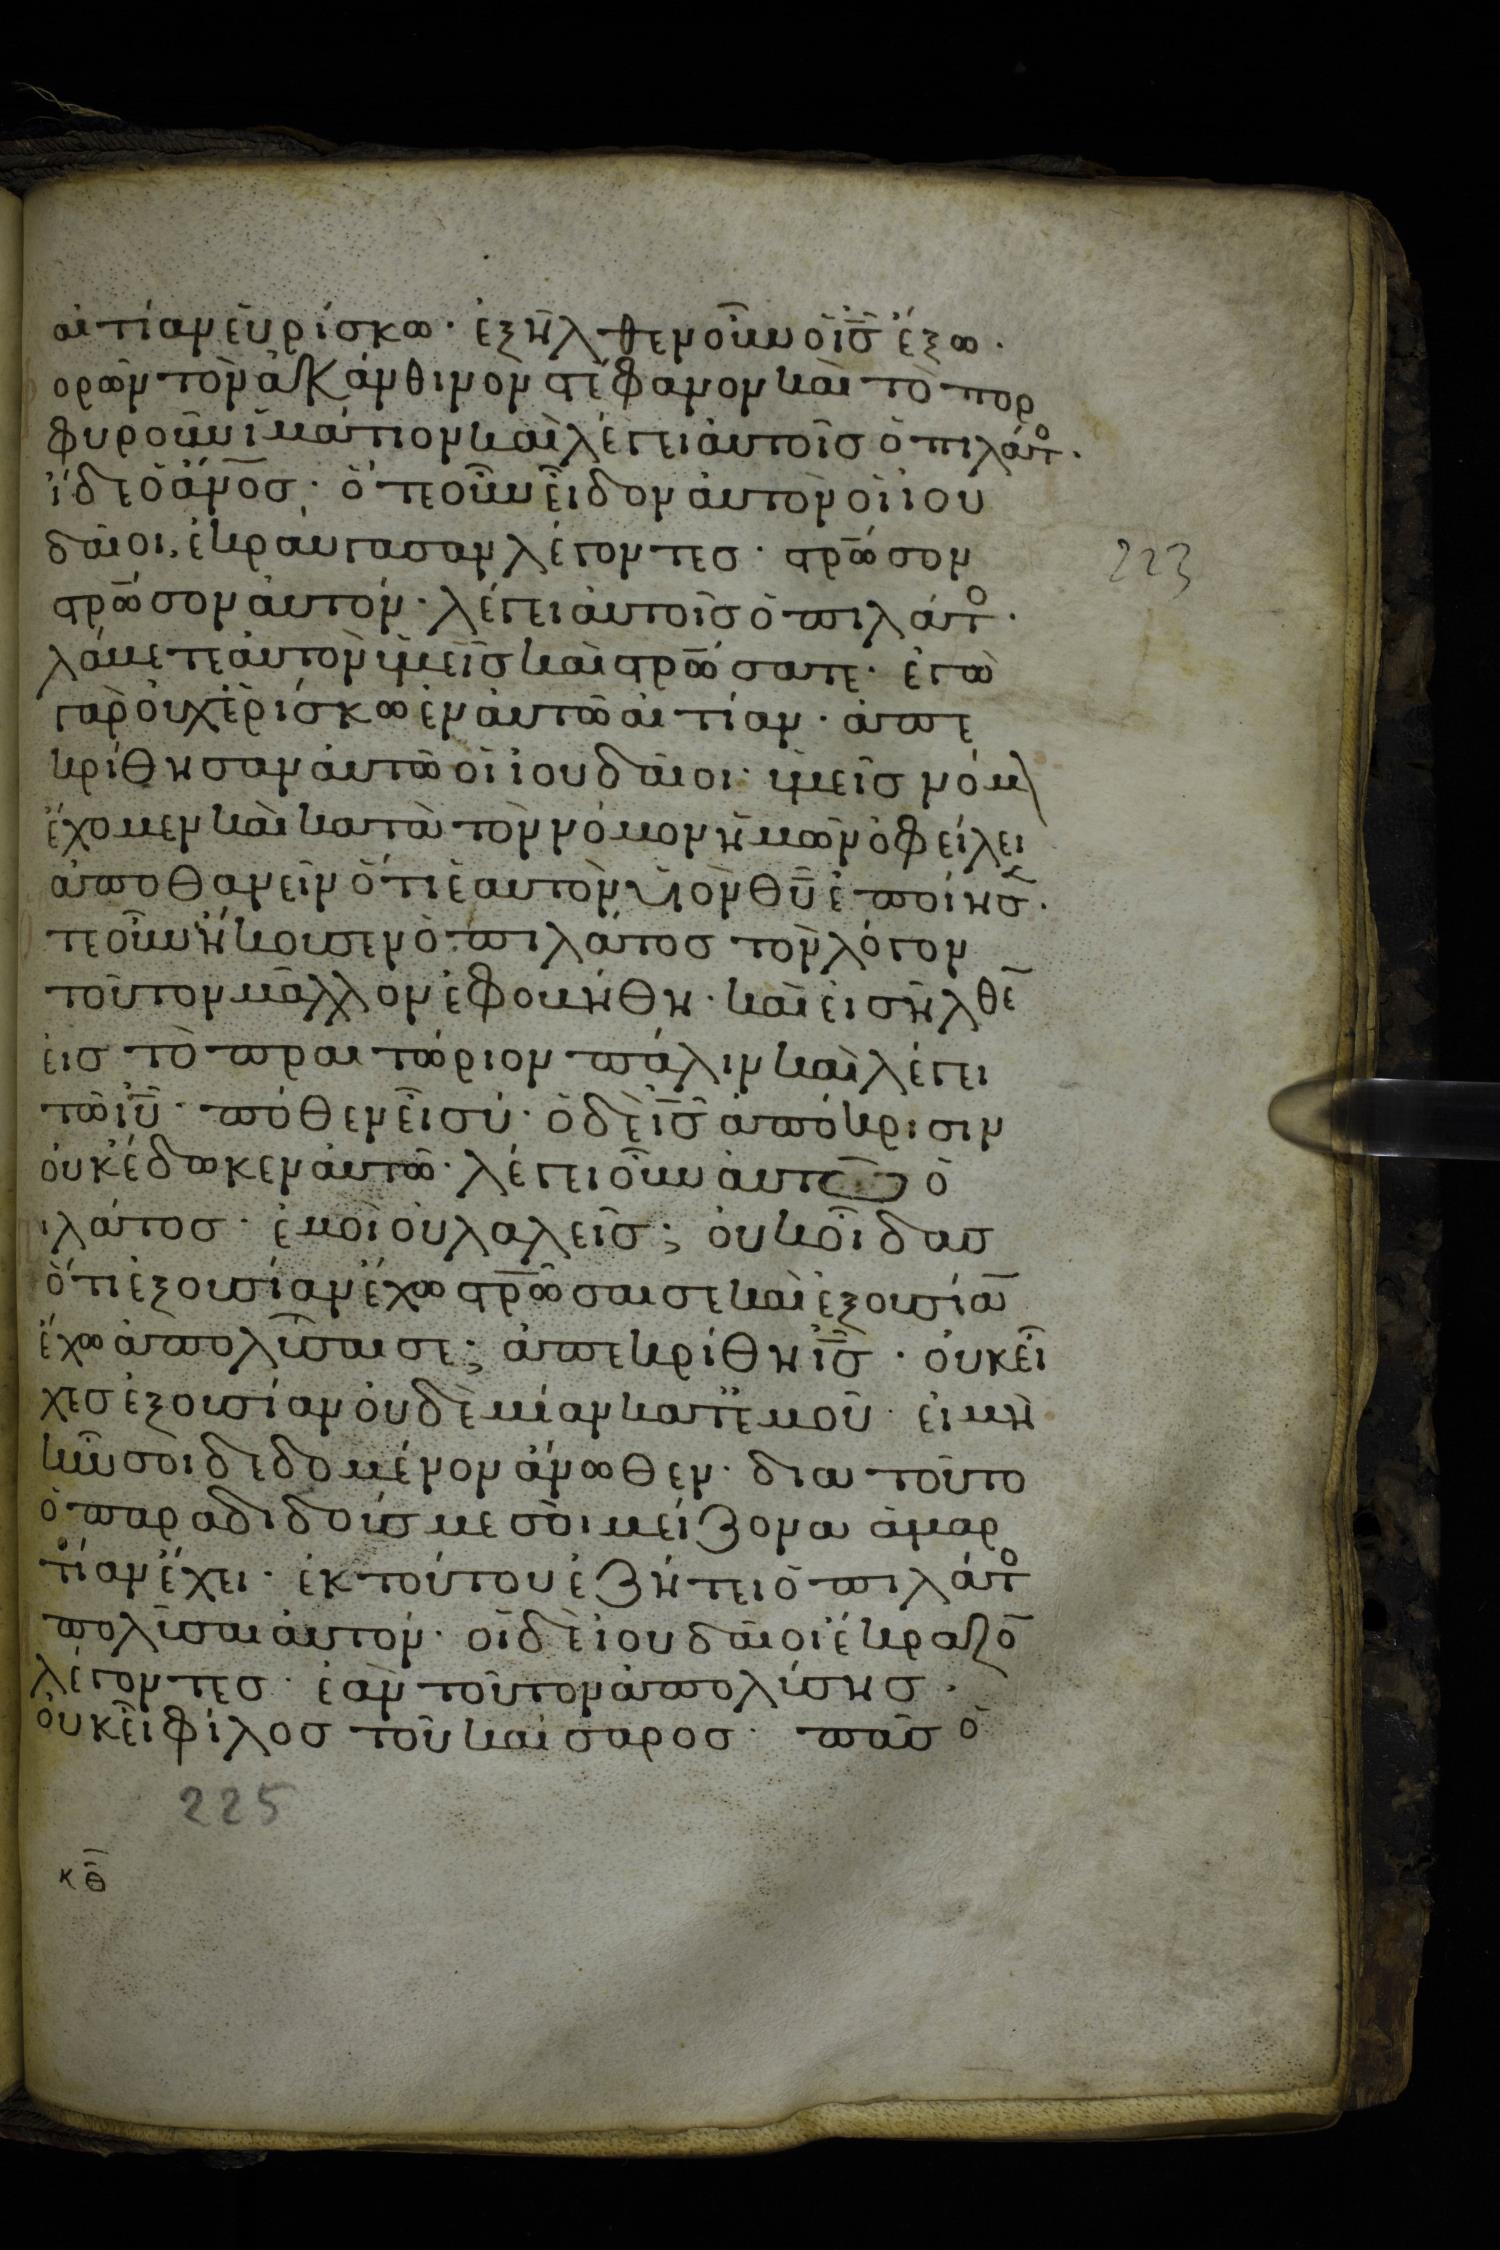 αἰτίαν εὑρίσκω· ἐξῆλθεν οὖν ὁ ι̅ς̅ ἔξω·
ορῶν τὸν ἀκάνθινον στέφανον καὶ τὸ πορ
φυροῦν ἱμάτιον καὶ λέγει ἀυτοῖσ ὁ πιλάτο·
ἴδε ὁ ἄν̅ο̅σ· ὅτε οὖν εἶδον ἀυτὸν οἱ ιου
δαῖοι, ἐκραύγασαν λέγοντεσ· στρω̅σον
στρω̅σον ἀυτόν· λέγει ἀυτοῖσ ὁ πιλάτο·
λάβετε ἀυτὸν ὑμεῖσ καὶ στρω̅σατε· ἐγὼ
γὰρ ὀυχ ἑρίσκω ἐν ἀυτῶ αἰτίαν· ἀπε
κρίθησαν ἀυτῶ οἱ ἰουδαῖοι· ὑμεῖσ νόμ
ἔχομεν καὶ κατὰ τὸν νόμον ἡμῶν ὀφείλει
ἀποθανεῖν ὅτι ἑαυτὸν υἱὸν θ̅υ̅ ἐποίησ·
τε οὖν ἤκουσεν ὁ πιλάτοσ τὸν λόγον
τοῦτον μᾶλλον ἐφοβήθη· καὶ εἰσῆλθε̅
εἰσ τὸ πραιτώριον πάλιν καὶ λέγει
τῶ ι̅υ̅· πόθεν εἶ σύ· ὁ δὲ ι̅ς̅ ἀπόκρισιν
ὀυκ ἔδωκεν ἀυτῶ· λέγει οὖν ἀυτῶ ὁ
ιλάτοσ· ἐμοὶ ὀυ λαλεῖσ; ὀυκ οἶδασ
ὅτι ἐξουσίαν ἔχω στρω̅σαι σε καὶ ἐξουσία̅
ἔχω ἀπολῦσαι σε; ἀπεκρίθη ι̅ς̅· ὀυκ εἶ
χεσ ἐξουσίαν ὀυδὲ μίαν κατ ἐμοῦ· ἐι μὴ
ἦν σοι δεδομένον ἄνωθεν· δια τοῦτο
ὁ παραδιδούσ με σοι μείζονα ἁμαρ
τίαν ἔχει· ἐκ τούτου ἐζήτει ὁ πιλάτο
πολῦσαι ἀυτόν· οἱ δὲ ἰουδαῖοι ἔκραζο̅
λέγοντεσ· ἐὰν τοῦτον ἀπολύσησ·
ὀυκ εἶ φίλοσ τοῦ καίσαροσ· πᾶσ ὁ
223
225
κθ̅